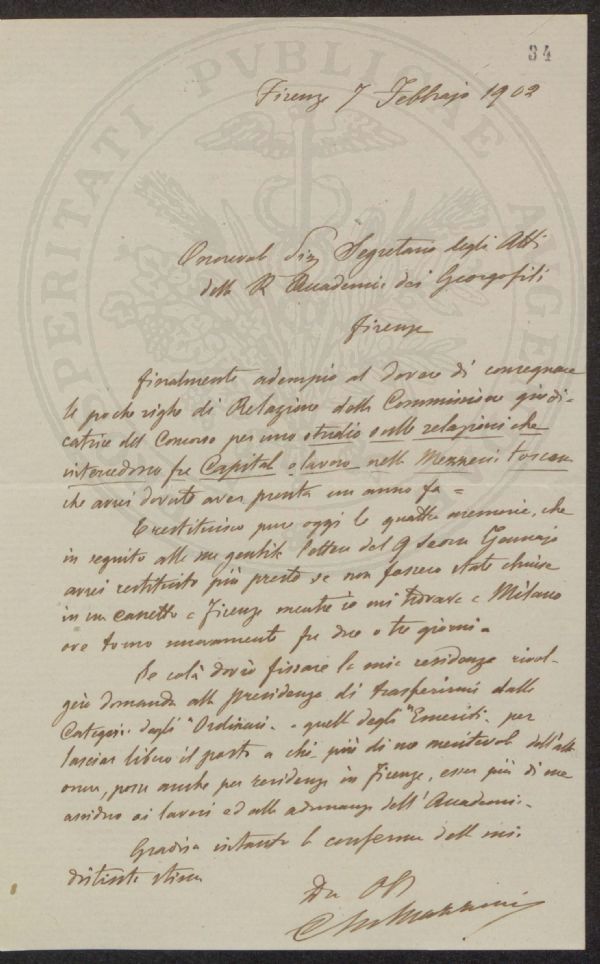 34
Firenze 7 Febbrajo 1902
Onorevol Sig Segretario degli Atti
della R Accademia dei Georgofili
Firenze
Finalmente adempio al dovere di consegnare
le poche righe di Relazione della Commissione giudi-
catrice del Concorso per uno studio sulle relazioni che
intercedono fra Capitale e lavoro nella Mezzeria toscana
che avrei dovuto aver pronta un anno fa =
E restituisco pure oggi le quattro memorie, che
in seguito alla sua gentile lettera del 9 Gennajo
avrei restituito più presto se non fossero state chiuse
in un cassetto a Firenze mentre io mi trovava a Milano
ove torno nuovamente fra due o tre giorni.
Se colà dovrò fissare la mia residenza rivol-
gerò domanda alla Presidenza di trasferirmi dalla
Categoria degli "Ordinari" a quella degli "Emeriti" per
lasciar libero il posto a chi più di me meritevole dell'alto
onore, possa anche per residenza in Firenze, esser più di me
assiduo ai lavori ed alle adunanze dell'Accademia.
Gradisca intanto la conferma della mia
distinta stima
PVBLICAE
PROSPERITATI
AVGENDAE